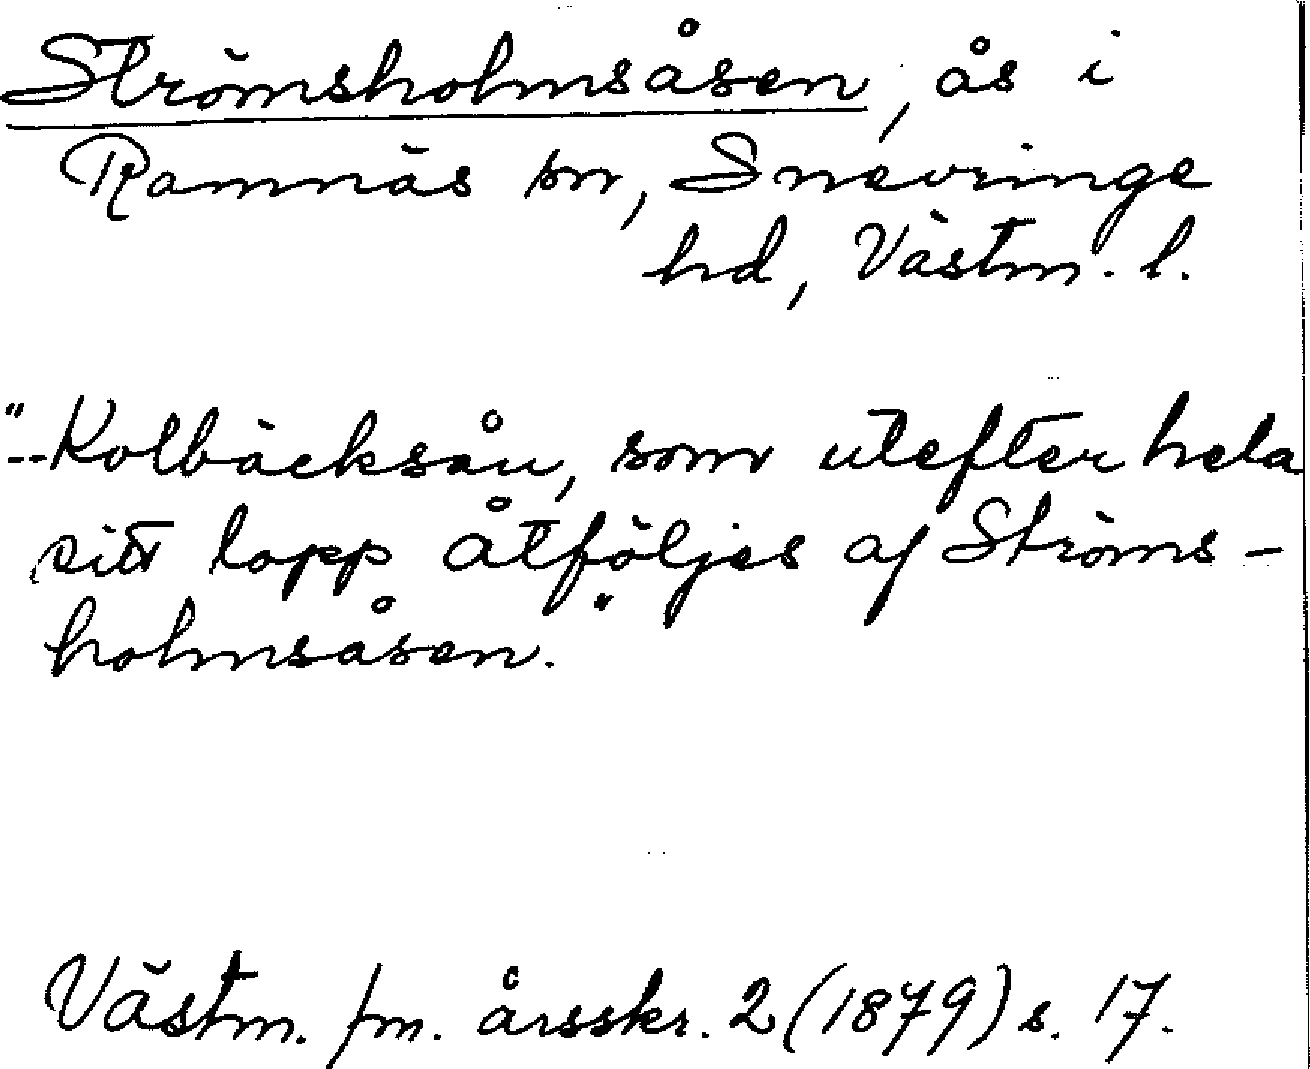 Strömsholmsåsen, ås i
Ramnäs sn, Snevringe
hd, Västm. l.
"--Kolbäcksån, som utefter hela
sitt lopp åtföljes af Ströms-
holmsåsen."
Västm. fm. årsskr. 2 (1879) s. 17.